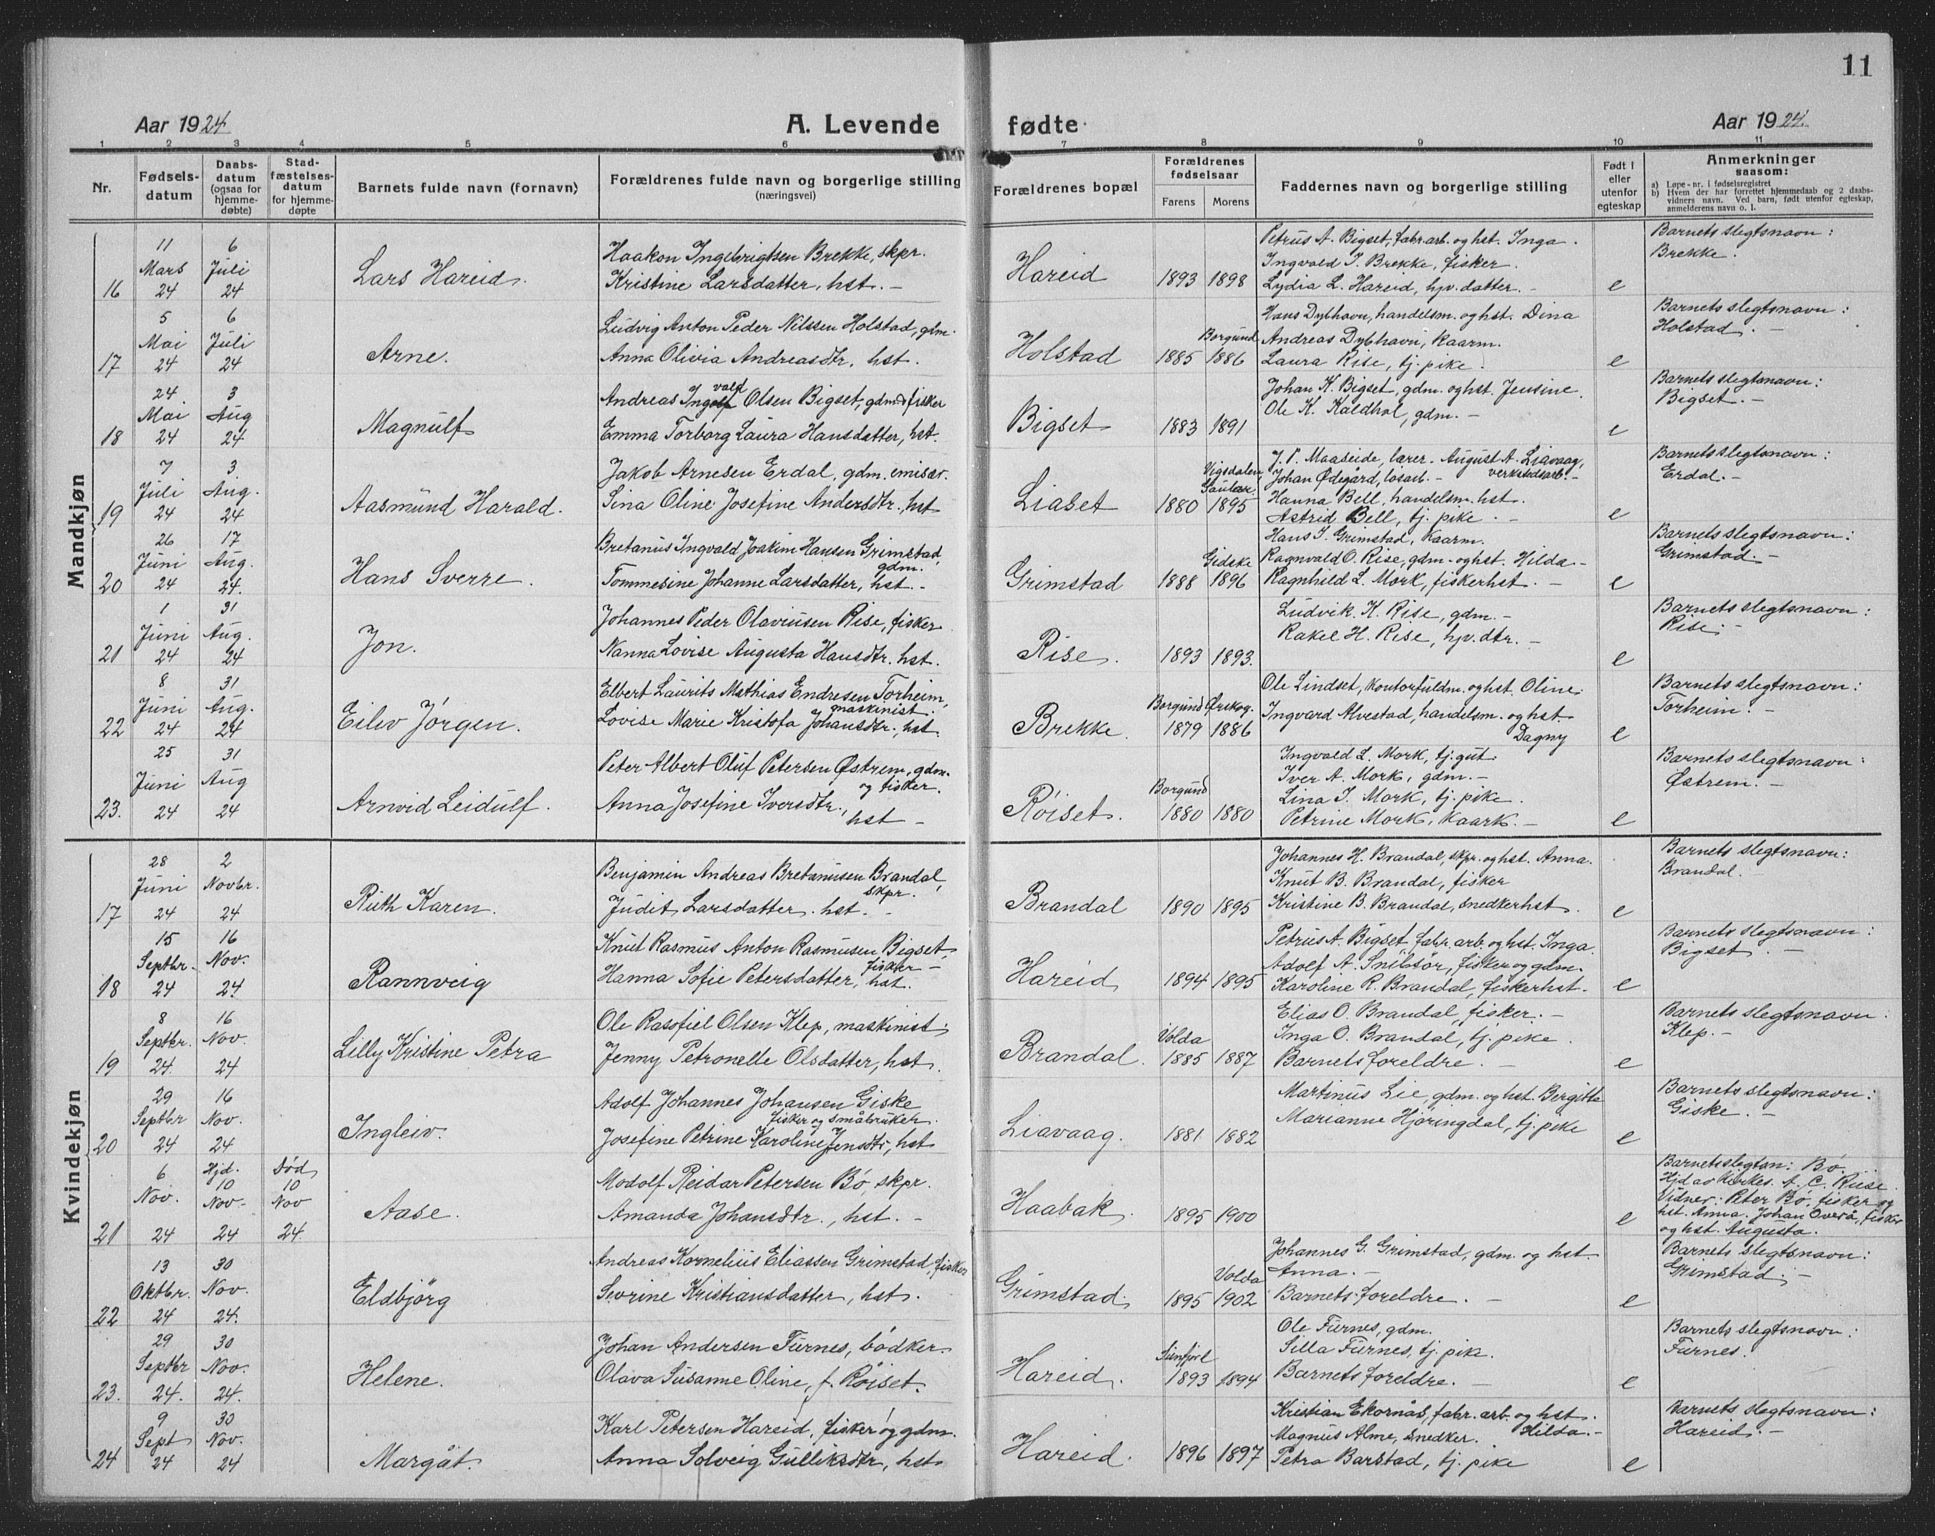 11
Aar 1924
A. Levende
fødte
Aar 1924
1 2 3 4 5 6 7 8 9 10 11
Nr.
Fødsels-
datum
Daabs-
datum
(ogsaa for
hjemme-
døbte)
Stad-
fæstelses-
datum
for hjemme-
døpte
Barnets fulde navn (fornavn)
Forældrenes fulde navn og borgerlige stilling
(næringsvei)
Forældrenes bopæl
Forældrenes
fødselsaar
Farens Morens
Faddernes navn og borgerlige stilling
Født i
eller
utenfor
egteskap
Anmerkninger
saasom:
a) Løpe-nr. i fødselsregistret
b) Hvem der har forrettet hjemmedaab og 2 daabs-
vidners navn. Ved barn, født utenfor egteskap,
anmelderens navn o. l.
Mandkjøn
16
11
Mars
24
6
Juli
24
Lars Hareid.
Haakon Ingebrigtsen Brekke, skpr.
Kristine Larsdatter, hst. -
Hareid
1893 1898
Petrus A. Bigset, fabr.arb. og hst. Inga.
Ingvald I. Brekke, fisker.
Lydia L. Hareid, hpv. datter. -
e
Barnets slegtsnavn:
Brekke.
17
5
Mai
24
6
Juli
24
Arne.
Ludvig Anton Peder Nilssen Holstad, gdm.
Anna Olivia Andreasdtr. hst.
Holstad
Borgund
1885 1886
Hans Dybhavn, handelsm. og hst. Dina
Andreas Dybhavn, Kaarm.
Laura Rise, tj. pike.
e
Barnets slegtsnavn:
Holstad. -
18
24
Mai
24
3
Aug
24
Magnulf
vald
Andreas Ingolf Olsen Bigset, gdm & fisker
Emma Torborg Laura Hansdatter, hst.
Bigset
1883 1891
Johan K. Bigset, gdm. og hst. Jensine.
Ole K. Kaldhol, gdm. -
e
Barnets slegtsnavn:
Bigset. -
19
7
Juli
24
3
Aug.
24
Aasmund Harald.
Jakob Arnesen Erdal, gdm. emisær.
Sina Oline Josefine Andersdtr., hst
Liaset
Vigsdalen
1880 1895
J. P. Maaseide, lærer - August A. Liavaag,
Johan Ødegård, løsarb. - verkstedsarb. -
Hanna Bell, handelsm. hst.
Astrid Bell, tj. pike. -
e
Barnets slegtsnavn:
Erdal. -
20
26
Juni
24
17
Aug.
24.
Hans Sverre.
Bretanus Ingvald Joakim Hansen Grimstad,
gdm.
Tommesine Johanne Larsdatter, hst. -
Grimstad
Giske
1888 1896
Hans J. Grimstad, Kaarm.
Ragnvald O. Rise, gdm. og hst. Hilda -
Ragnhild L. Mork, fiskerhst. -
e
Barnets slegtsnavn:
Grimstad. -
21
1
Juni
24
31
Aug.
24
Jon.
Johannes Peder Olaviusen Rise, fisker
Nanna Lovise Augusta Hansdtr. hst.
Rise.
1893 1893.
Ludvik K. Rise, gdm. -
Rakel H. Rise, hpv. dtr. -
e
Barnets slegtsnavn:
Rise. -
22
8
Juni
24
31
Aug.
24
Eilev Jørgen.
Elbert Laurits Mathias Endresen Torheim,
maskinist.
Lovise Marie Kristofa Johansdtr., hst.
Brekke.
Borgund Ørskog.
1879 1886
Ole Lindset, kontorfuldm. og hst. Oline.
Ingvard Alvestad, handelsm. og hst
Dagny
e
Barnets slegtsnavn:
Torheim. -
23.
25
Juni
24
31
Aug
24
Arnvid Leidulf.
Peter Albert Oluf Petersen Østrem, gdm.
og fisker.
Anna Josefine Iversdtr.,
hst -
Røiset.
Borgund
1880 1880
Ingvald L. Mork, tj. gut
Iver A. Mork, gdm. -
Lina I. Mork, tj. pike.
Petrine Mork, Kaark. -
e
Barnets slegtsnavn:
Østrem. -
Kvindekjøn
17
28
Juni
24
2
Novbr.
24
Ruth Karen.
Benjamin Andreas Bretanusen Brandal,
skpr.
Judit Larsdatter. hst. -
Brandal
1890 1895
Johannes H. Brandal, skpr. og hst. Anna.
Knut B. Brandal, fisker
Kristine B. Brandal, snedkerhst.
e
Barnets slegtsnavn:
Brandal.
18
15
Septbr.
24
16
Nov.
24
Rannveig
Knut Rasmus Anton Rasmusen Bigset,
fisker -
Hanna Sofie Petersdatter, hst.
Hareid
1894 1895
Petrus A. Bigset, fabr. arb. og hst. Inga.
Adolf A. Snibsør, fisker og gdm.
Karoline R. Brandal, fiskerhst. -
e
Barnets slegtsnavn:
Bigset. -
19
8
Septbr.
24
16
Nov.
24
Lilly Kristine Petra
Ole Rasofiel Olsen Klep, maskinist.
Jenny Petronelle Olsdatter, hst.
Brandal.
Volda
1885 1887
Elias O. Brandal, fisker. -
Inga O. Brandal, tj. pike.
Barnets foreldre. -
e
Barnets slegtsnavn:
Klep. -
20
29
Septbr
24
16
Nov.
24
Ingleiv.
Adolf Johannes Johansen Giske
fisker og småbruker.
Josefine Petrine Karoline Jensdtr, hst
Liavaag.
1881 1882
Martinus Lie, gdm. og hst. Bergitta
Marianne Hjøringdal, tj. pike
e
Barnets slegtsnavn:
Giske. -
21
6
Nov.
24
Hjd.
10
Nov.
24
Død
10
Nov
24
Aase.
Modolf Reidar Petersen Bø, skpr.
Amanda Johansdtr., hst. -
Haabak.
1895 1900
e
Barnets slegtsn: Bø.
Hjd av Kirkes. A. C. Riise.
Vidner: Peter Bø, fisker og
hst. Anna. Johan Overå, fisker
og hst. Augusta.
22
13
Oktbr.
24
30
Nov.
24.
Eldbjörg
Andreas Kornelius Eliassen Grimstad, fisker
Sevrine Kristiansdatter, hst.
Grimstad.
Volda
1895 1902
Johannes G. Grimstad, gdm. og hst
Anna. -
Barnets foreldre. -
e
Barnets slegtsnavn:
Grimstad. -
23.
29
Septbr
24.
30
Nov.
24.
Helene.
Johan Andersen Furnes, bødker
Olava Susanne Oline, f. Røiset.
Hareid.
Sunfjord
1893 1894
Ole Furnes, gdm.
Silla Furnes, tj. pike.
Barnets foreldre. -
e
Barnets slegtsnavn:
Furnes.
24
9
Sept
24
30
Nov.
24
Margåt.
Karl Petersen Hareid, fisker og gdm.
Anna Solveig Gulliksdtr, hst
Hareid.
1896 1897
Kristian Ekornås, fabr. arb. og hst.
Magnus Alme, snedker. Hilda. -
Petra Barstad, tj. pike
e
Barnets slegtsnavn:
Hareid. -